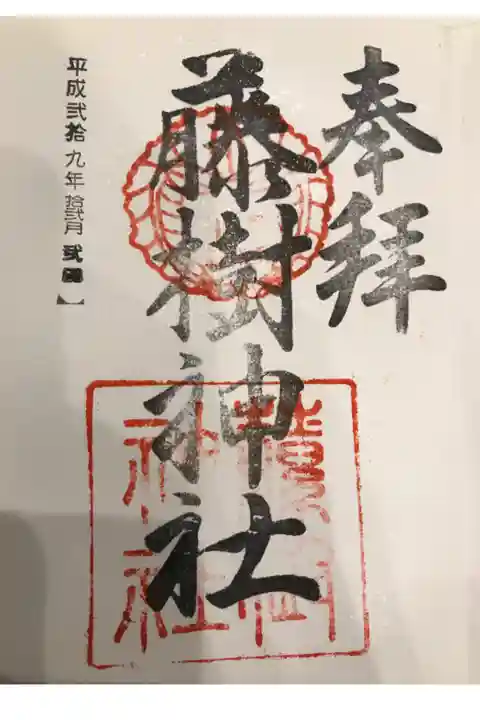 奉拝
藤樹神社
平成弐拾九年拾弐月弐
藤樹
神社